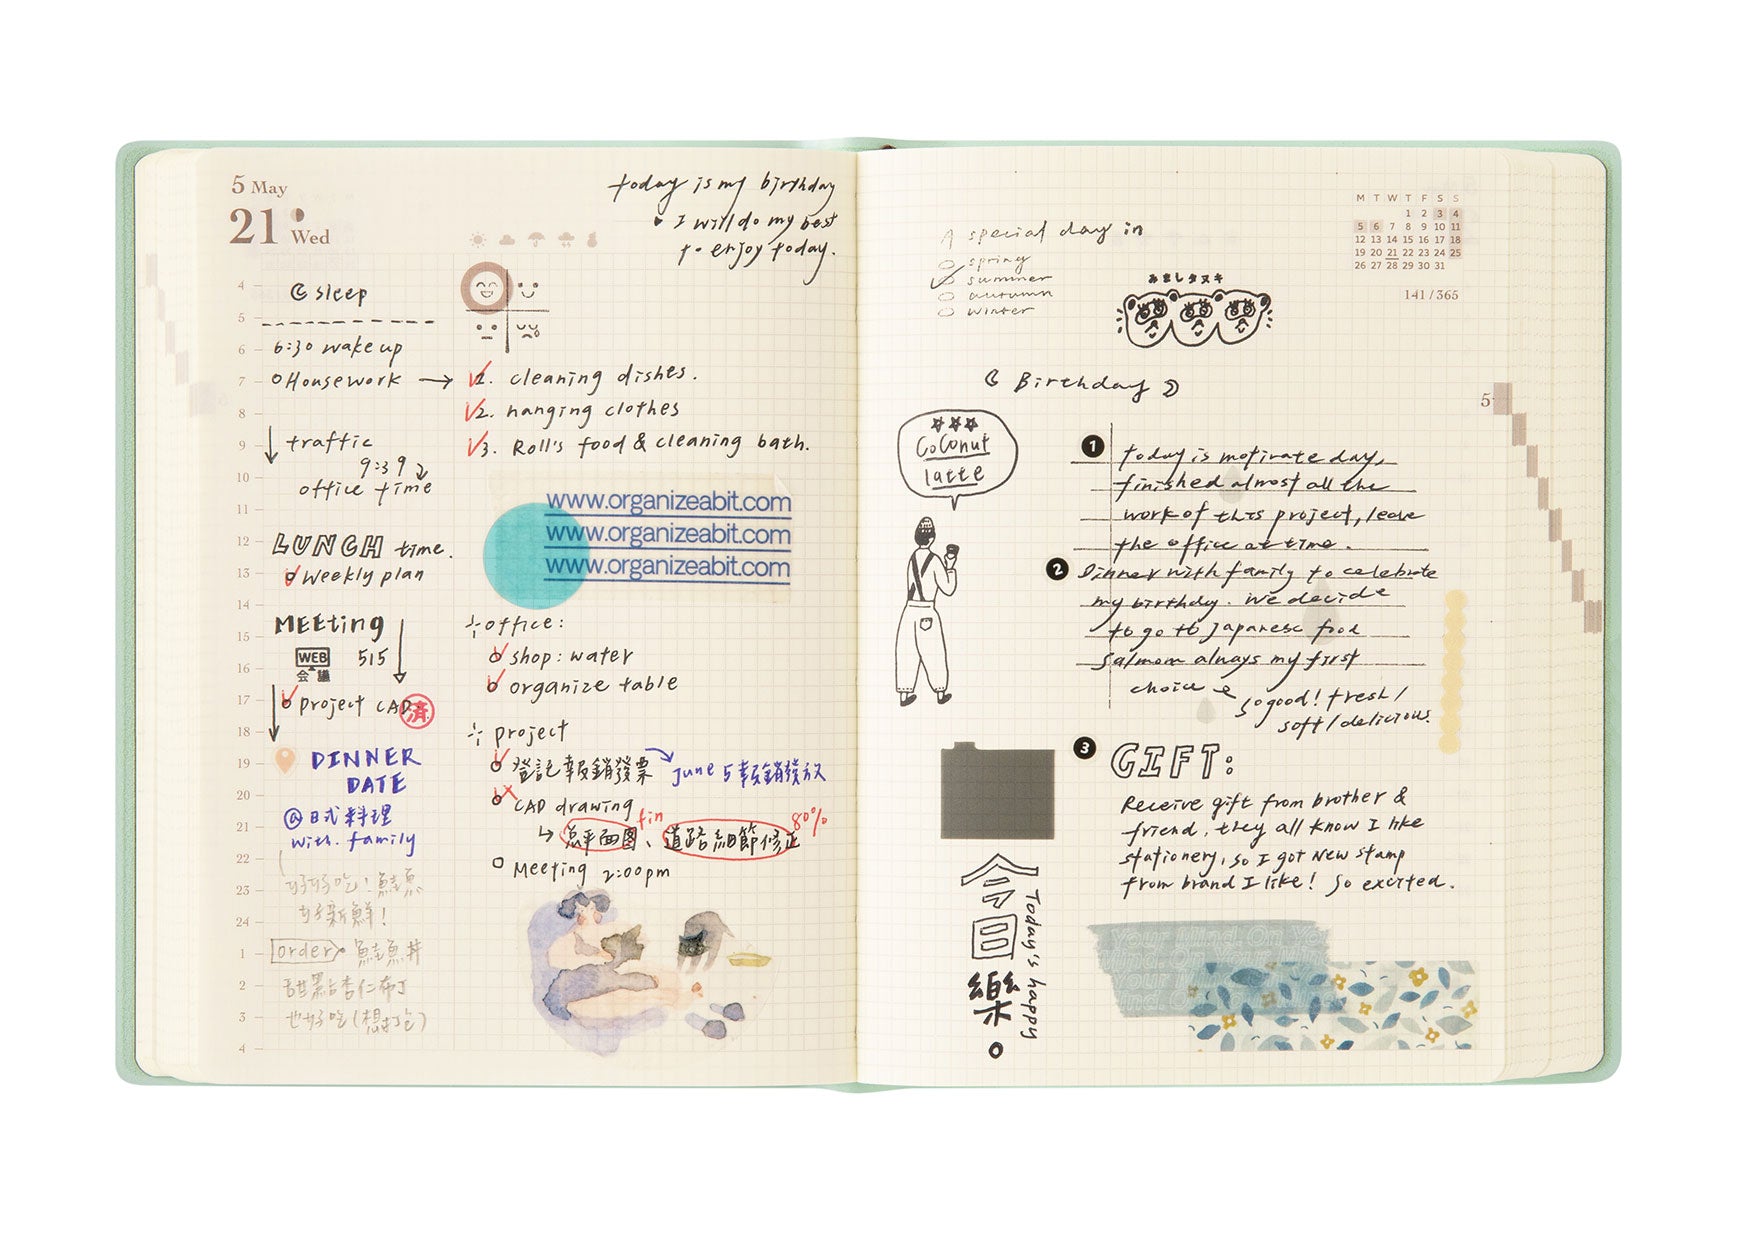 5 May
21 Wed
today is my birthday
I will do my best
to enjoy today.
4
sleep
5
6
6:30 wake up
7
Housework → 1. cleaning dishes.
8
2. hanging clothes
9
traffic
3. Roll's food & cleaning bath.
9:39
10
office time
www.organizeabit.com
11
www.organizeabit.com
12
LUNCH time.
www.organizeabit.com
13
weekly plan
14
MEETING
office:
15
WEB
会議
515
shop: water
16
organize table
17
project CAD
済
18
project
DINNER
19
登記報銷發票 → June 5 報銷發放
DATE
20
CAD drawing
@日式料理
fin
80%
21
↳ 總平面图、道路細節修正
with. family
22
Meeting 2:00pm
23
好好吃!鮭魚
好新鮮!
24
1
order 鮭魚丼
2
甜點杏仁布丁
3
也好吃(想打包)
4
A special day in
spring
summer
autumn
winter
みましタヌキ
M T W T F S S
1 2 3 4
5 6 7 8 9 10 11
12 13 14 15 16 17 18
19 20 21 22 23 24 25
26 27 28 29 30 31
141/365
Birthday
5
CoConut
latte
1
today is motivate day,
finished almost all the
work of this project, leave
the office at time.
2
Dinner with family to celebrate
my birthday. We decide
to go to Japanese food
salmom always my first
choice
so good! fresh/
soft/delicious.
3
GIFT:
Receive gift from brother &
friend, they all know I like
stationery, so I got New stamp
from brand I like! So excited.
今日樂。
Today's happy